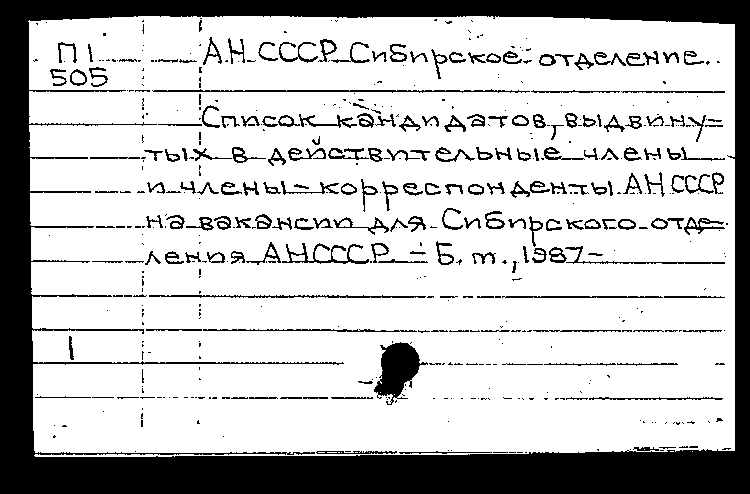 П1 АН СССР Сибирское отделение.
505
Список кандидатов, выдвину=
тых в действительные члены
и члены-корреспонденты АН СССР
на вакансии для Сибирского отде=
ления АН СССР. - Б. т., 1987-
1